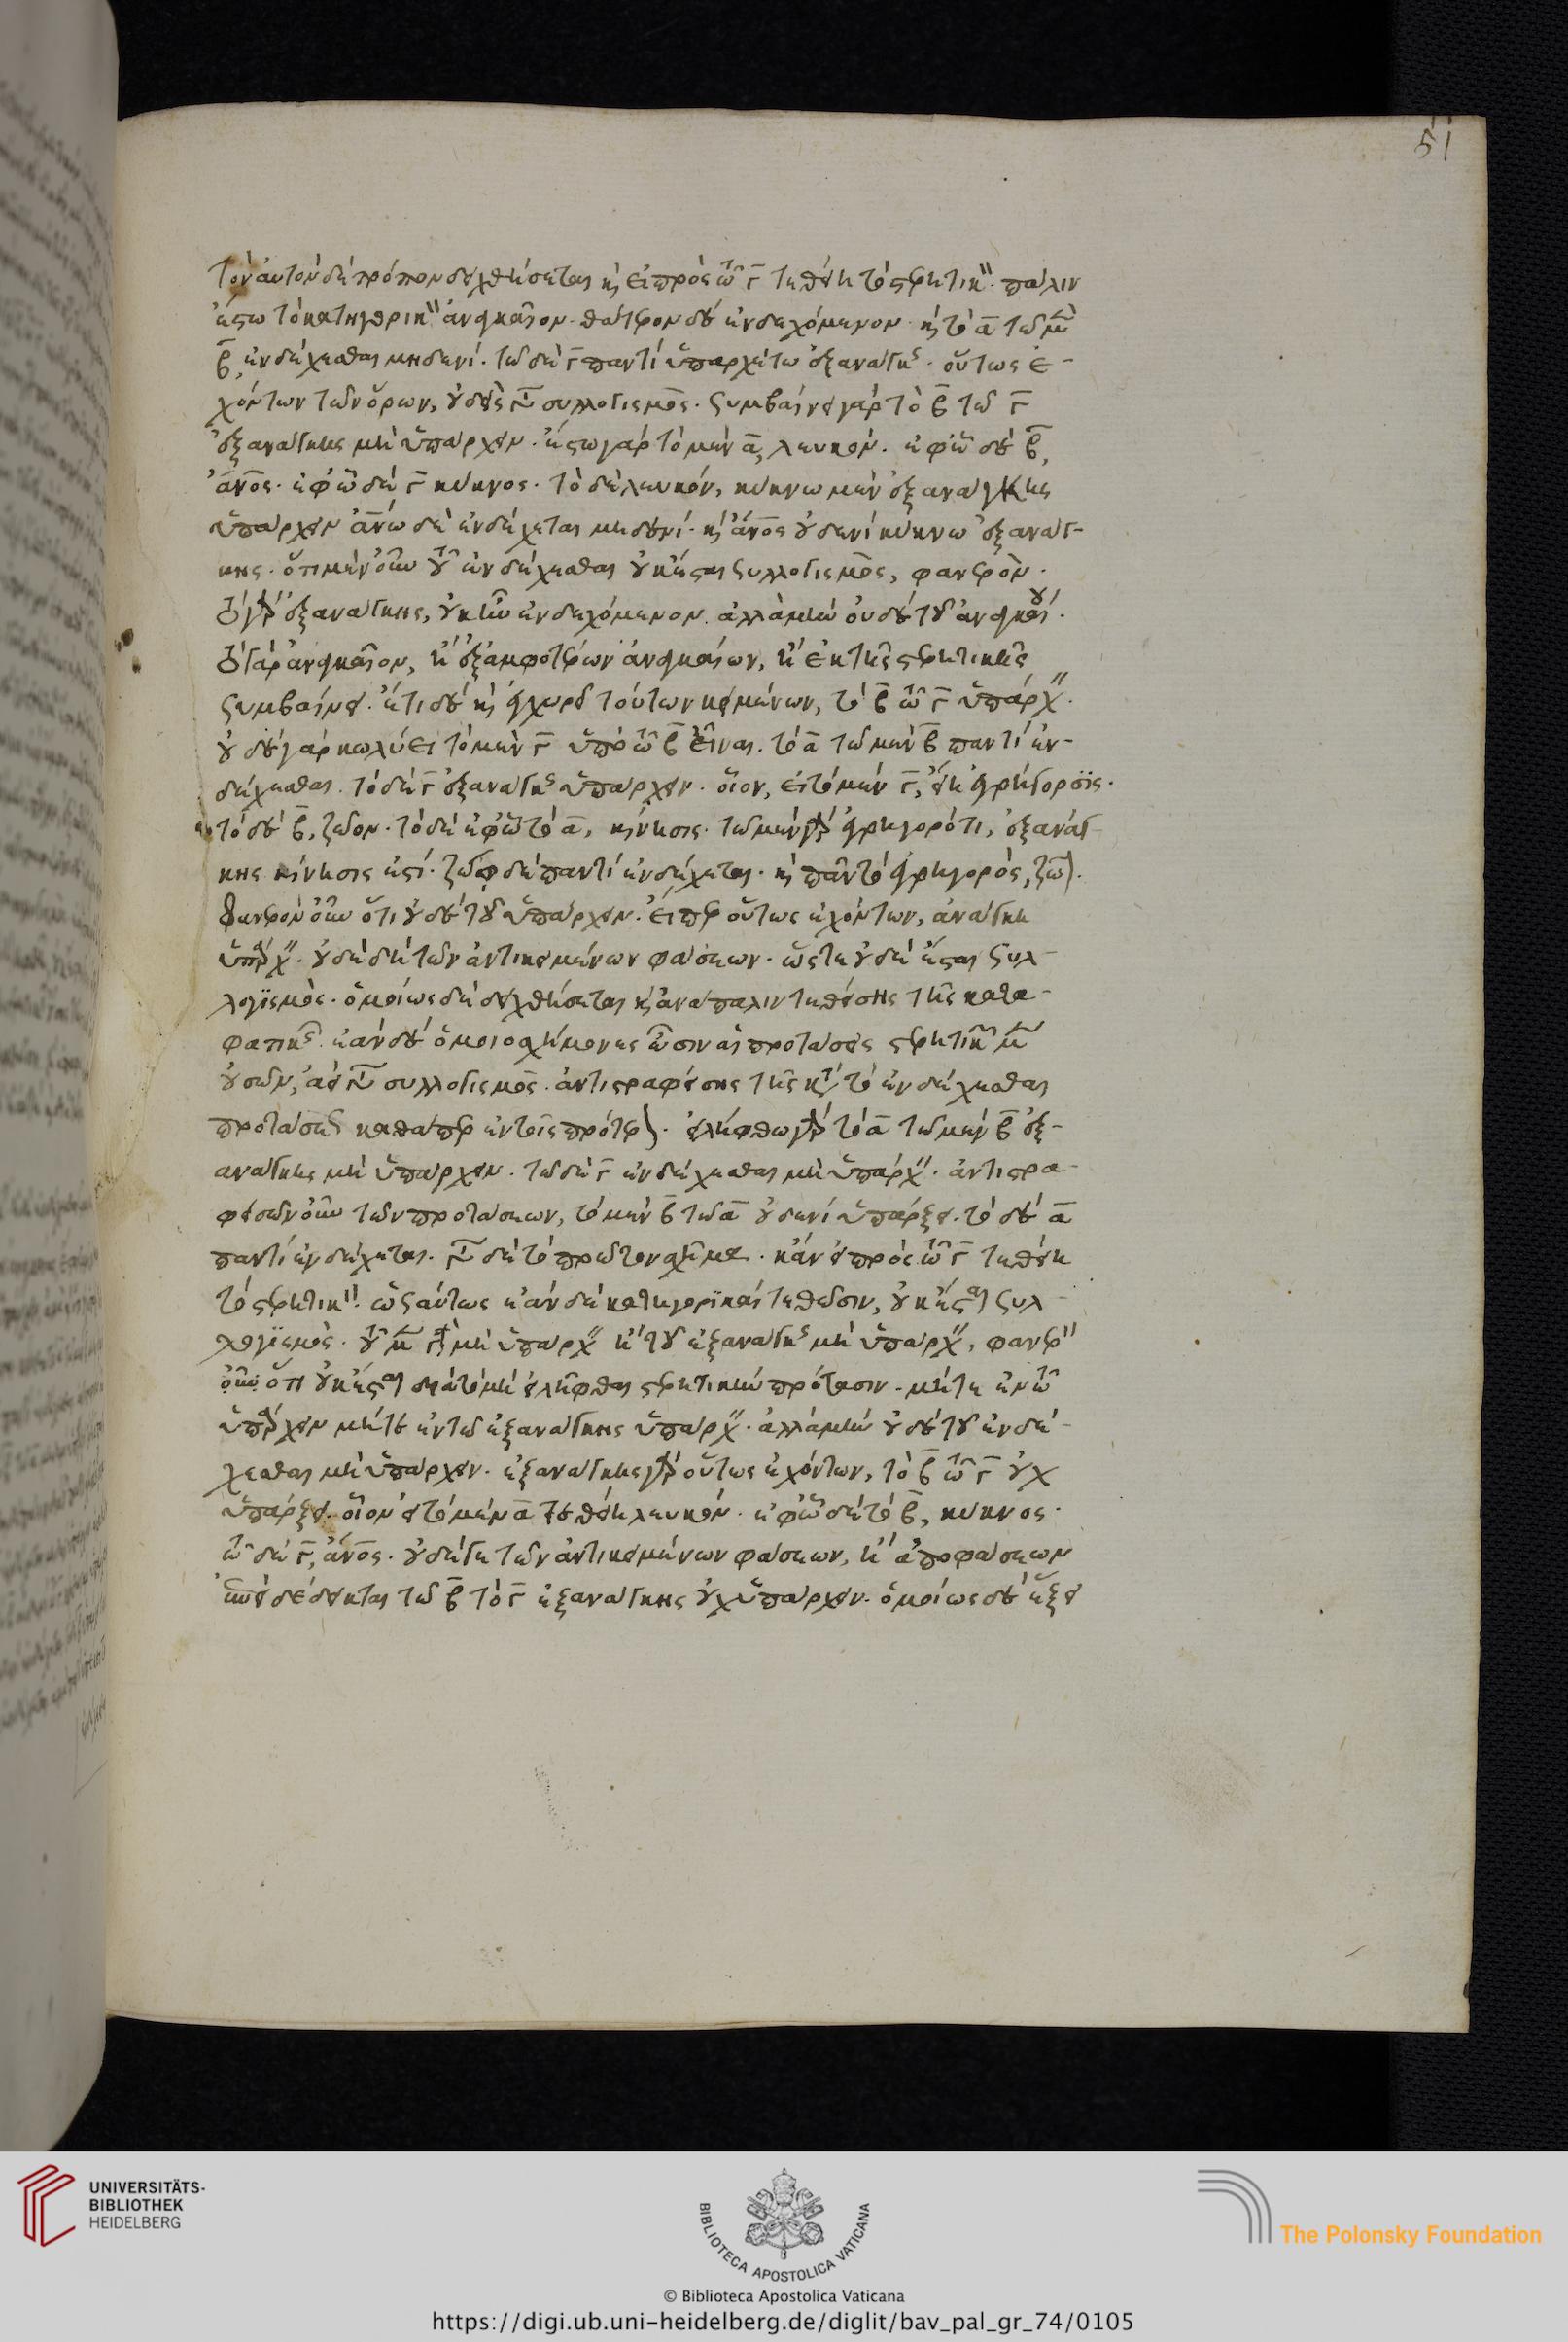 51
Τὸν αὐτὸν δὲ τρόπον δειχθήσεται κ̀ εἰ πρὸς τῶ Γ̅ τεθείη τὸ στερητικ῝. πάλιν
ἔστω τὸ κατηγορικ῝ ἀναγκαῖον. θάτερον δὲ ἐνδεχόμενον. κ̀ τὸ α̅ τῶ μὲν
β̅, ἐνδέχεσθαι μηδενί. τῶ δὲ Γ̅ παντὶ ὑπαρχέτω ἐξ ἀνάγκης. οὕτως ἐ-
χόντων τῶν ὅρων, οὐδεὶς ἔσται συλλογισμός. συμβαίνει γὰρ τὸ β̅ τῶ Γ̅
ἐξ ἀνάγκης μὴ ὑπάρχειν. ἔστω γὰρ τὸ μὲν α̅, λευκόν. ἐφ' ὧ δὲ β̅,
ἄν̅ος. ἐφ' ὧ δὲ Γ̅ κύκνος. τὸ δὲ λευκόν, κύκνω μὲν ἐξ ἀνάγκης
ὑπάρχειν ἀν̅ω δὲ ἐνδέχεται μηδενί. κ̀ ἄν̅ος οὐδενὶ κύκνω ἐξ ἀνάγ-
κης. ὅτι μὲν οὖν τοῦ ἐνδέχεσθαι οὐκ ἔσται συλλογισμός, φανερόν.
τὸ γὰρ ἐξ ἀνάγκης, οὐκ ἦν ἐνδεχόμενον. ἀλλὰ μὴν οὐδὲ τοῦ ἀναγκαίου.
τὸ γὰρ ἀναγκαῖον, ἢ ἐξ ἀμφοτέρων ἀναγκαίων, ἢ ἐκ τῆς στερητικῆς
συμβαίνει. ἔτι δὲ κ̀ ἐγχωρεῖ τούτων κειμένων, τὸ β̅ τῶ Γ̅ ὑπάρχ῝.
οὐδὲν γὰρ κωλύει τὸ μὲν Γ̅ ὑπὸ τῶ β̅ εἶναι. τὸ α̅ τῶ μὲν β̅ παντὶ ἐν-
δέχεσθαι. τὸ δὲ Γ̅ ἐξ ἀνάγκης ὑπάρχειν. οἷον, εἰ τὸ μὲν Γ̅, εἴη ἐγρήγορσϊς.
τὸ δὲ β̅, ζῶον. τὸ δὲ ἐφ' ὧ τὸ α̅, κίνησις. τῶ μὲν γὰρ ἐγρηγορότι, ἐξ ἀνάγ-
κης κίνησις ἐστί. ζώῳ δὲ παντὶ ἐνδέχεται. κ̀ πᾶν τὸ ἐγρηγορός, ζῶον.
φανερὸν οὖν ὅτι οὐδὲ τοῦ ὑπάρχειν. εἴπερ οὕτως ἐχόντων, ἀνάγκη
ὑπάρχ῝. οὐδὲ δὴ τῶν ἀντικειμένων φάσεων. ὥστε οὐδὲ ἔσται συλ-
λογϊσμός. ὁμοίως δὲ δειχθήσεται κ̀ ἀνάπαλιν τεθείσης τῆς κατα-
φατικῆς. ἐὰν δὲ ὁμοιοσχήμονες ὦσιν αἱ προτάσεις στερητικῶν μὲν
οὐσῶν, ἀεὶ ἔσται συλλογισμός. ἀντιστραφείσης τῆς κατὰ τὸ ἐνδέχεσθαι
προτάσεως καθάπερ ἐν τοῖς πρότερον. εἰλήφθω γὰρ τὸ α̅ τῶ μὲν β̅ ἐξ-
ανάγκης μὴ ὑπάρχειν. τῶ δὲ Γ̅ ἐνδέχεσθαι μὴ ὑπάρχ῝. ἀντιστρα-
φεισῶν οὖν τῶν προτάσεων, τὸ μὲν β̅ τῶ α̅ οὐδενὶ ὑπάρξει. τὸ δὲ α̅
παντὶ ἐνδέχεται. Γίνεται δὲ τὸ πρῶτον σχῆμα. κἂν εἰ πρὸς τῶ Γ̅ τεθείη
τὸ στερητικ῝. ὡσαύτως ἐὰν δὲ κατηγορϊκαὶ τεθῶσιν, οὐκ ἔσται συλ-
λογϊσμός. τοῦ μὲν γὰρ μὴ ὑπάρχ῝ ἢ τοῦ ἐξ ἀνάγκης μὴ ὑπάρχ῝, φανερ῝
οὖν ὅτι οὐκ ἔσται διὰ τὸ μὴ εἰλῆφθαι στερητικὴν πρότασιν. μήτε ἐν τῶ
ὑπάρχειν μήτε ἐν τῶ ἐξ ἀνάγκης ὑπάρχ῝. ἀλλὰ μὴν οὐδὲ τοῦ ἐνδέ-
χεσθαι μὴ ὑπάρχειν. ἐξ ἀνάγκης γὰρ οὕτως ἐχόντων, τὸ β̅ τῶ Γ̅ οὐχ
ὑπάρξει. οἷον εἰ τὸ μὲν α̅ τεθείη λευκόν. ἐφ' ὧ δὲ τὸ β̅, κύκνος.
τῶ δὲ Γ̅, ἄν̅ος. οὐδέ γε τῶν ἀντικειμένων φάσεων, ἢ ἀποφάσεων
ἐπεὶ δέδεικται τῶ β̅ τὸ Γ̅ ἐξ ἀνάγκης οὐχ ὑπάρχειν. ὁμοίως δὲ ἕξει
UNIVERSITÄTS-
BIBLIOTHEK
HEIDELBERG
BIBLIOTECA APOSTOLICA VATICANA
The Polonsky Foundation
© Biblioteca Apostolica Vaticana
https://digi.ub.uni-heidelberg.de/diglit/bav_pal_gr_74/0105